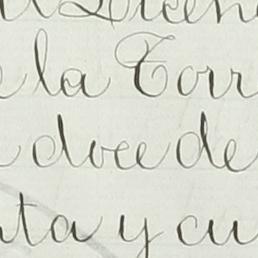 la Torr
doce de
ta y cu